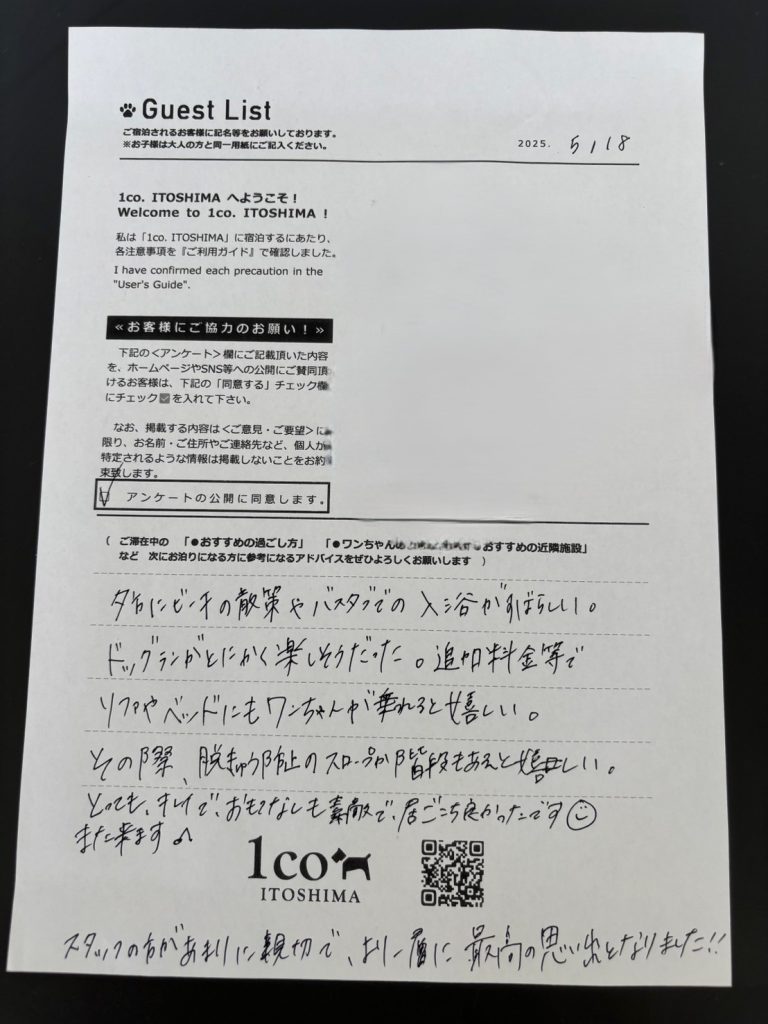 Guest List
ご宿泊されるお客様に記名等をお願いしております。
※お子様は大人の方と同一用紙にご記入ください。
2025. 5/18
1co. ITOSHIMA へようこそ！
Welcome to 1co. ITOSHIMA !
私は「1co. ITOSHIMA」に宿泊するにあたり、
各注意事項を『ご利用ガイド』で確認しました。
I have confirmed each precaution in the
"User's Guide".
≪お客様にご協力のお願い！≫
下記の＜アンケート＞欄にご記載頂いた内容
を、ホームページやSNS等への公開にご賛同頂
けるお客様は、下記の「同意する」チェック欄
にチェック☑を入れて下さい。
なお、掲載する内容は＜ご意見・ご要望＞に
限り、お名前・ご住所やご連絡先など、個人が
特定されるような情報は掲載しないことをお約
束致します。
アンケートの公開に同意します。
（ ご滞在中の 「●おすすめの過ごし方」 「●ワンちゃん おすすめの近隣施設」
など 次にお泊りになる方に参考になるアドバイスをぜひよろしくお願いします ）
夕方にビーチの散策やバスタブでの入浴がすばらしい。
ドッグランがとにかく楽しそうだった。追加料金等で
ソファやベッドにもワンちゃんが乗れると嬉しい。
その際、脱きゅう防止のスロープか階段もあると嬉しい。
とっても、キレイで、おもてなしも素敵で、居ごこち良かったです☺
また来ます♪
1co
ITOSHIMA
スタッフの方があまりに親切で、より一層に最高の思い出となりました!!